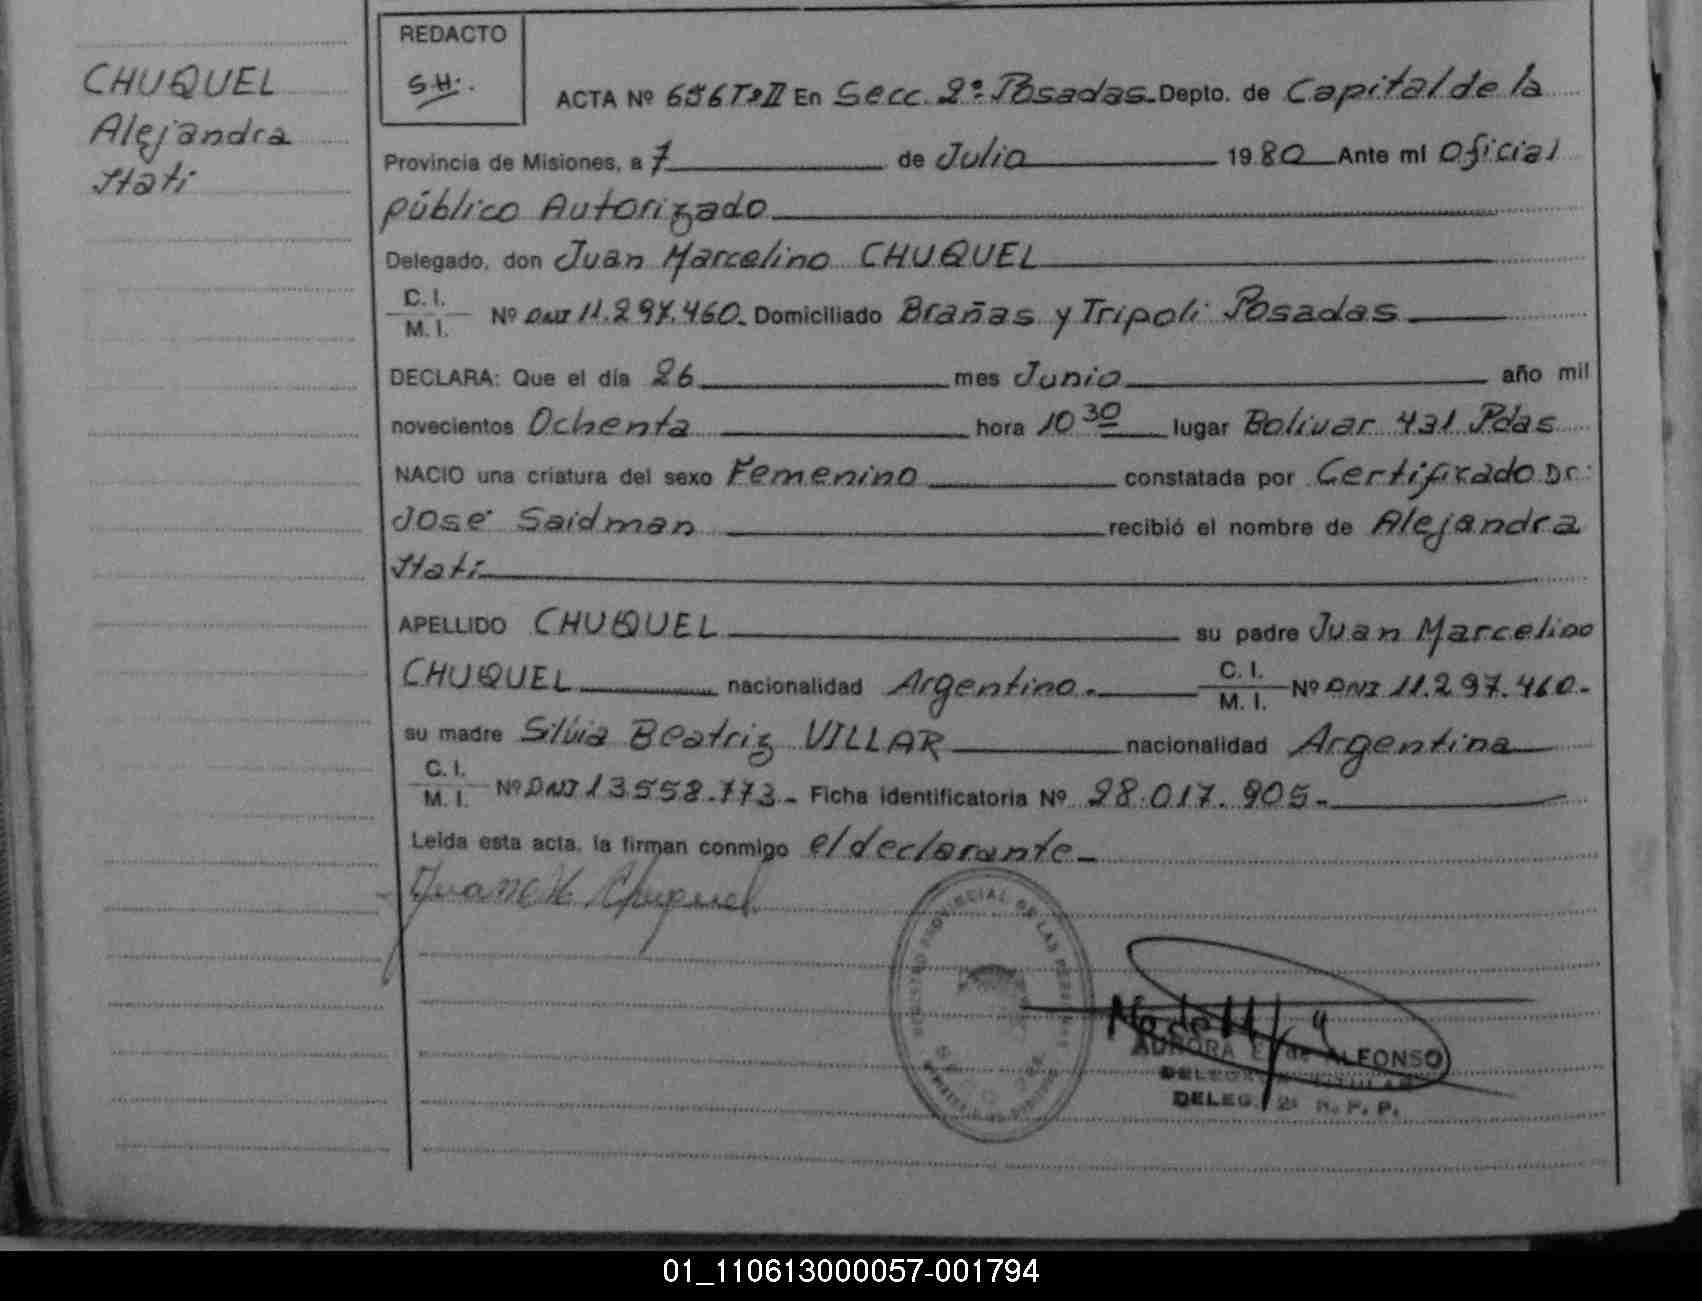 CHUQUEL
Alejandra
Itatí
REDACTO
S.H.
ACTA Nº 656 Tº II En Secc. 2º Posadas. Depto. de Capital de la
Provincia de Misiones, a 7 de Julio 1980 Ante mi Oficial
público Autorizado
Delegado, don Juan Marcelino CHUQUEL
C. I.
M. I. Nº DNI 11.297.460. Domiciliado Brañas y Tripoli Posadas
DECLARA: Que el día 26 mes Junio año mil
novecientos Ochenta hora 10 30 lugar Bolivar 431 Pdas
NACIO una criatura del sexo Femenino constatada por Certificado Dr.
José Saidman recibió el nombre de Alejandra
Itatí
APELLIDO CHUQUEL su padre Juan Marcelino
CHUQUEL nacionalidad Argentino. C. I.
M. I. Nº DNI 11.297.460.
su madre Silvia Beatriz VILLAR nacionalidad Argentina
C. I.
M. I. Nº DNI 13.558.773. Ficha identificatoria Nº 28.017.905.
Leída esta acta, la firman conmigo el declarante.
Juan M Chuquel
REGISTRO PROVINCIAL DE LAS PERSONAS
AURORA E. de ALFONSO
DELEGADA TITULAR
DELEG. 2ª R. P. P.
01_110613000057-001794